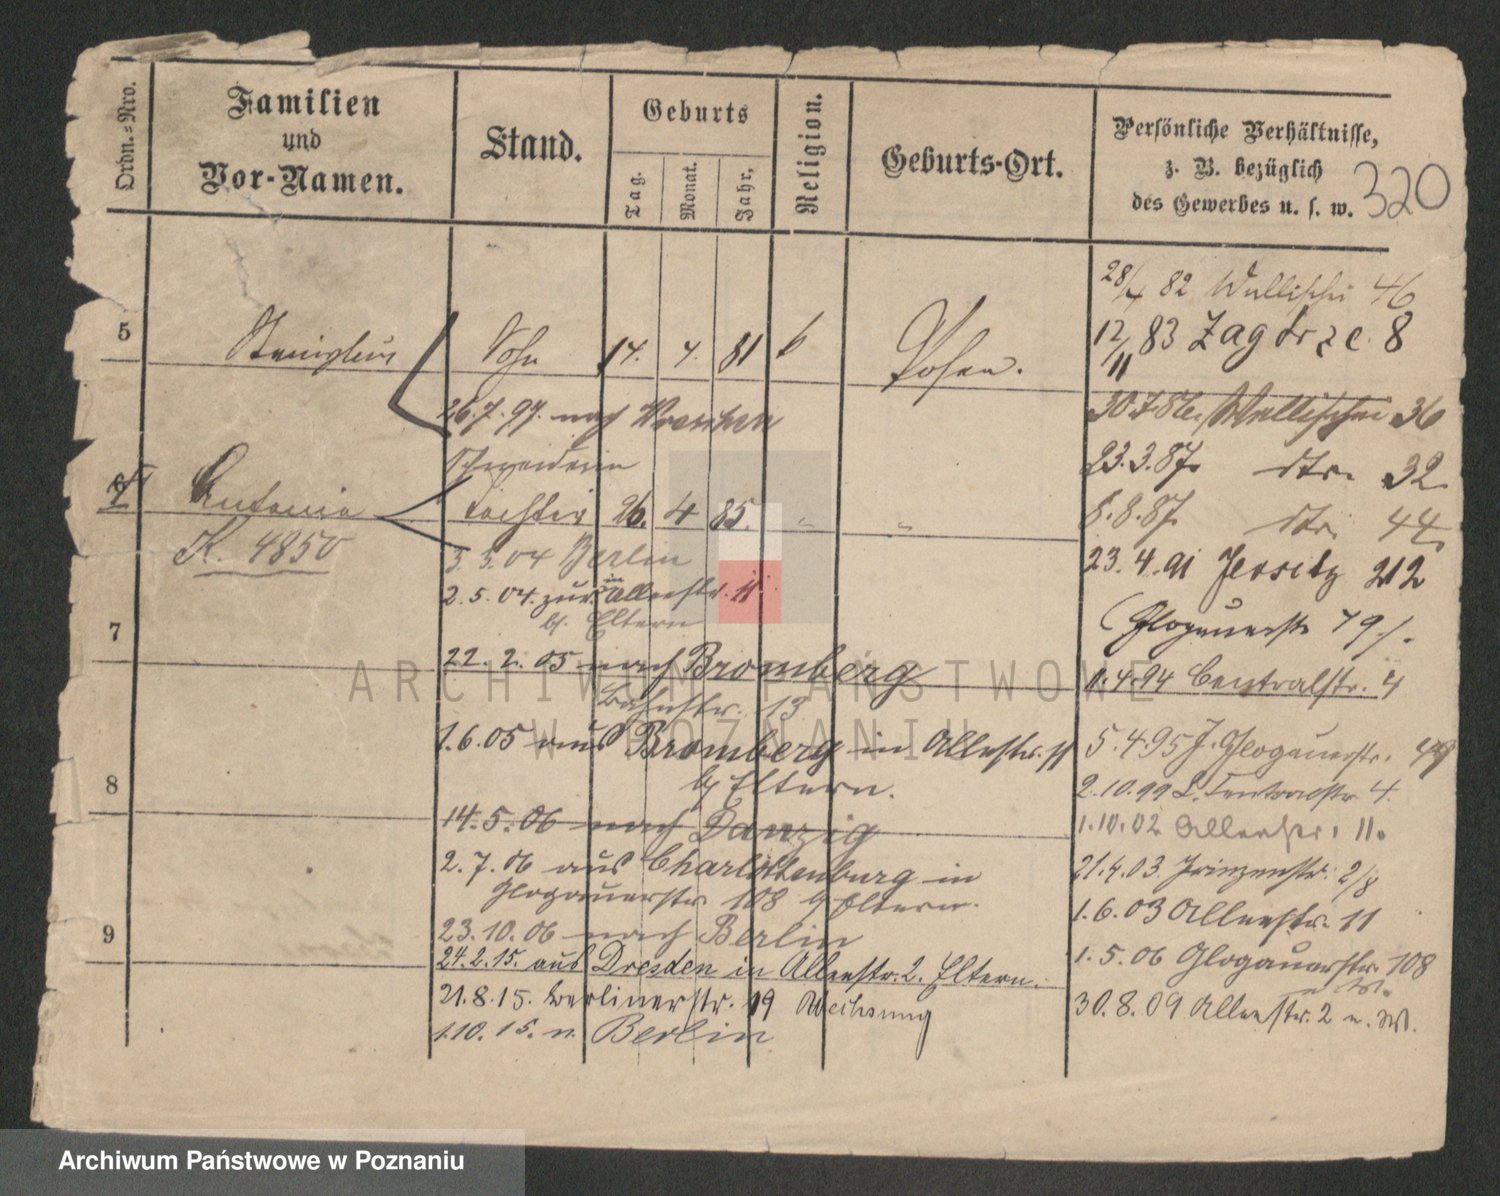 Ordn.=Nro.
Familien
und
Vor-Namen.
Stand.
Geburts
Tag.
Monat.
Jahr.
Religion.
Geburts-Ort.
Persönliche Verhältnisse,
z. B. bezüglich
des Gewerbes u. s. w.
320
5
Stanislaus
Sohn
14. 4. 81 k
Posen.
26.7.97. nach Wreschen
6
Antonie
K. 4850
Schneiderin
Tochter 26. 4 85. " "
3.3.04 Berlin
2.5.04. zur. in Allerstr. 11
b. Eltern
7
22. 2. 05 nach Bromberg
Bahnstr. 13
1.6.05 aus Bromberg in Allestr. 11
b/ Eltern.
8
14.5.06 nach Danzig
2.7.06 aus Charlottenburg in
Glogauerstr. 108 b/ Eltern.
23.10.06 nach Berlin
9
24.2.15. aus Dresden in Alleestr. 2. Eltern.
21.8.15. Berlinerstr. 19
1.10.15. n. Berlin
28/4 82 Wallischei 46
12/11 83 Zagórze. 8
30.7.86. Wallischei 36
23.3.87. dto. 32
8.8.87. dto. 44
23.4.91 Jersitz 212
Glogauerstr 79/.
1.4.94 Centralstr. 4
5.4.95 J. Glogauerstr. 79
2.10.99 L. Centralstr 4.
1.10.02 Alleestr. 11.
21.4.03. Prinzenstr. 2/8
1.6.03 Alleestr. 11
1.5.06 Glogauerstr. 108
30.8.09 Alleestr. 2 u. W.
ARCHIWUM PAŃSTWOWE
W POZNANIU
Archiwum Państwowe w Poznaniu